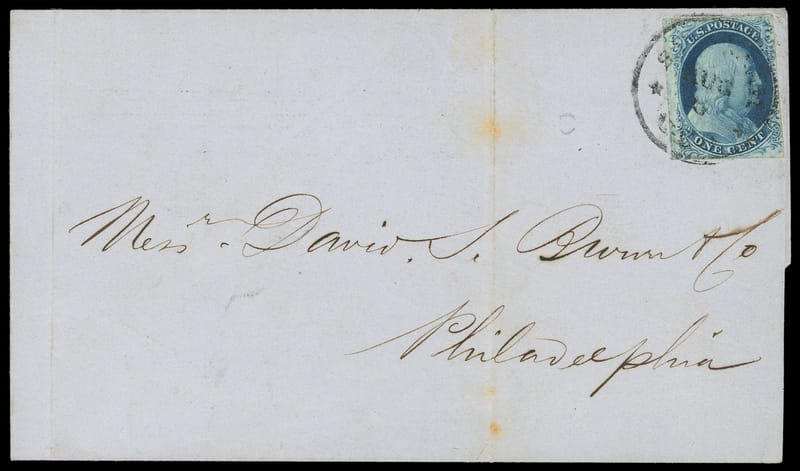 U.S. POSTAGE
AUG
ONE CENT
Messr. David. S. Brown & Co
Philadelphia